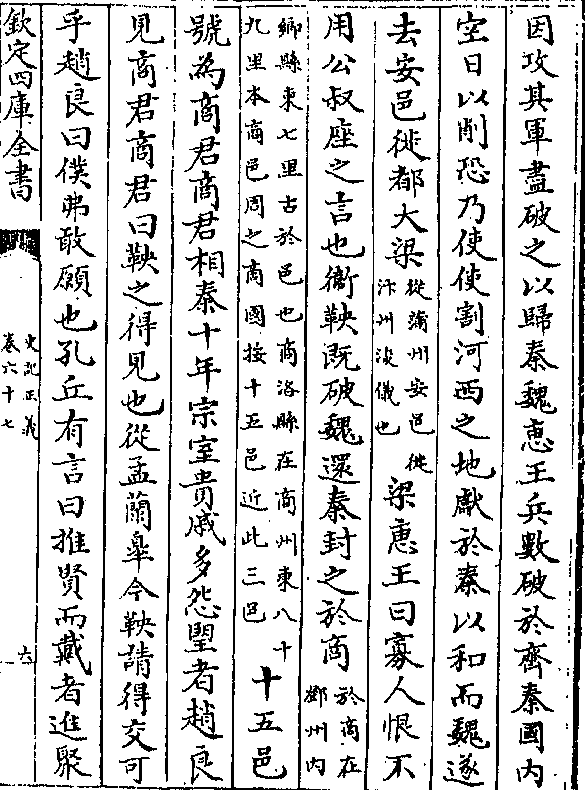 因攻其軍盡破之以歸秦魏惠王兵數破於齊秦國内
空日以削恐乃使使割河西之地獻於秦以和而魏遂
去安邑徙都大梁從蒲州安邑徙汴州浚儀也梁惠王曰寡人恨不
用公叔座之言也衞鞅既破魏還秦封之於商於商在鄧州内
鄉縣東七里古於邑也商洛縣在商州東八十九里本商邑周之商國按十五邑近此三邑十五邑
號為商君商君相秦十年宗室貴戚多怨望者趙良
見商君商君曰鞅之得見也從孟蘭臯今鞅請得交可
乎趙良曰僕弗敢願也孔丘有言曰推賢而戴者進聚
欽定四庫全書
史記正義
卷六十七
六